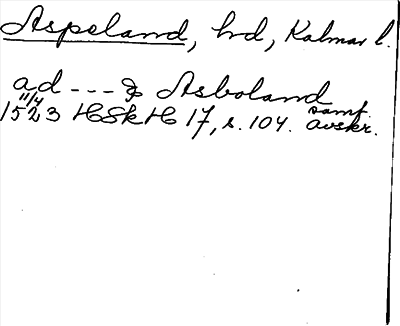 Aspeland, hd, Kalmar l.
ad --- Asboland
11/4 1523 HSkH 17, s. 104. samt. avskr.